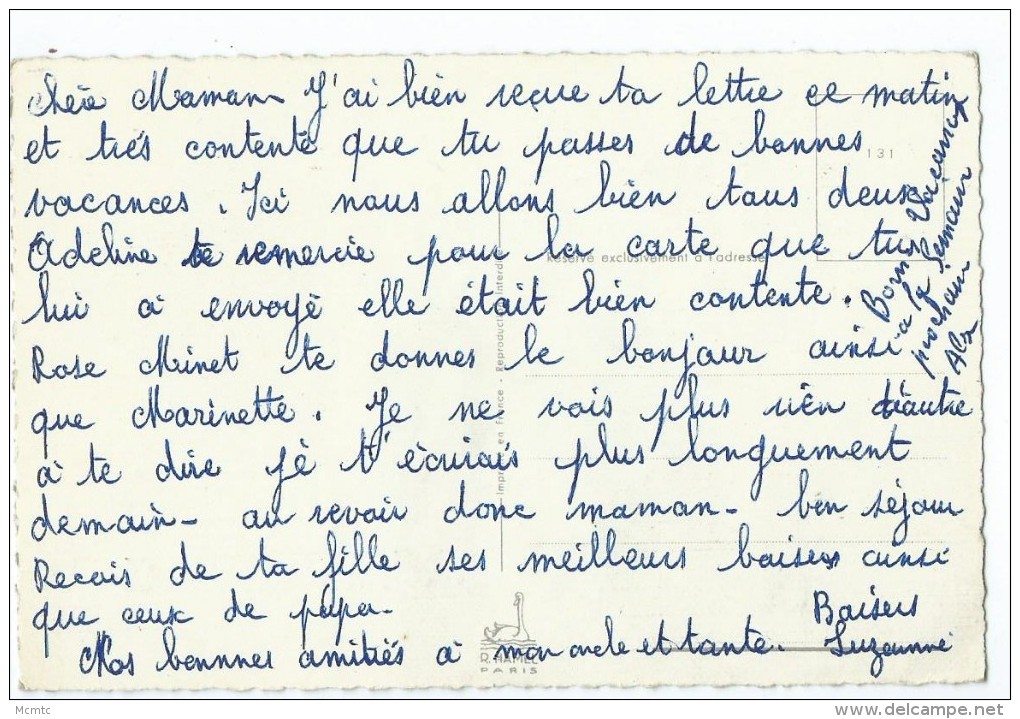 chère Maman J'ai bien reçue ta lettre ce matin
et trés contente que tu passes de bonnes
vacances. Ici nous allons bien tous deux
Adeline te remercie pour la carte que tu
lui à envoyé elle était bien contente.
Rose Minet te donnes le bonjour ainsi
que Marinette. Je ne vois plus rien d'autre
à te dire je t'écriais plus longuement
demain - au revoir donc maman - bon séjour
Recois de ta fille ses meilleurs baisers ainsi
que ceux de papa -
Baisers
Nos bonnnes amitiés à mon oncle et tante. Suzanne
Bonne Vacances
a la semaine
prochaine
131
Réservé exclusivement à l'adresse
Imprimé en France - Reproduction interdite
R. HAMEL
PARIS
Mcmtc
delcampe.net